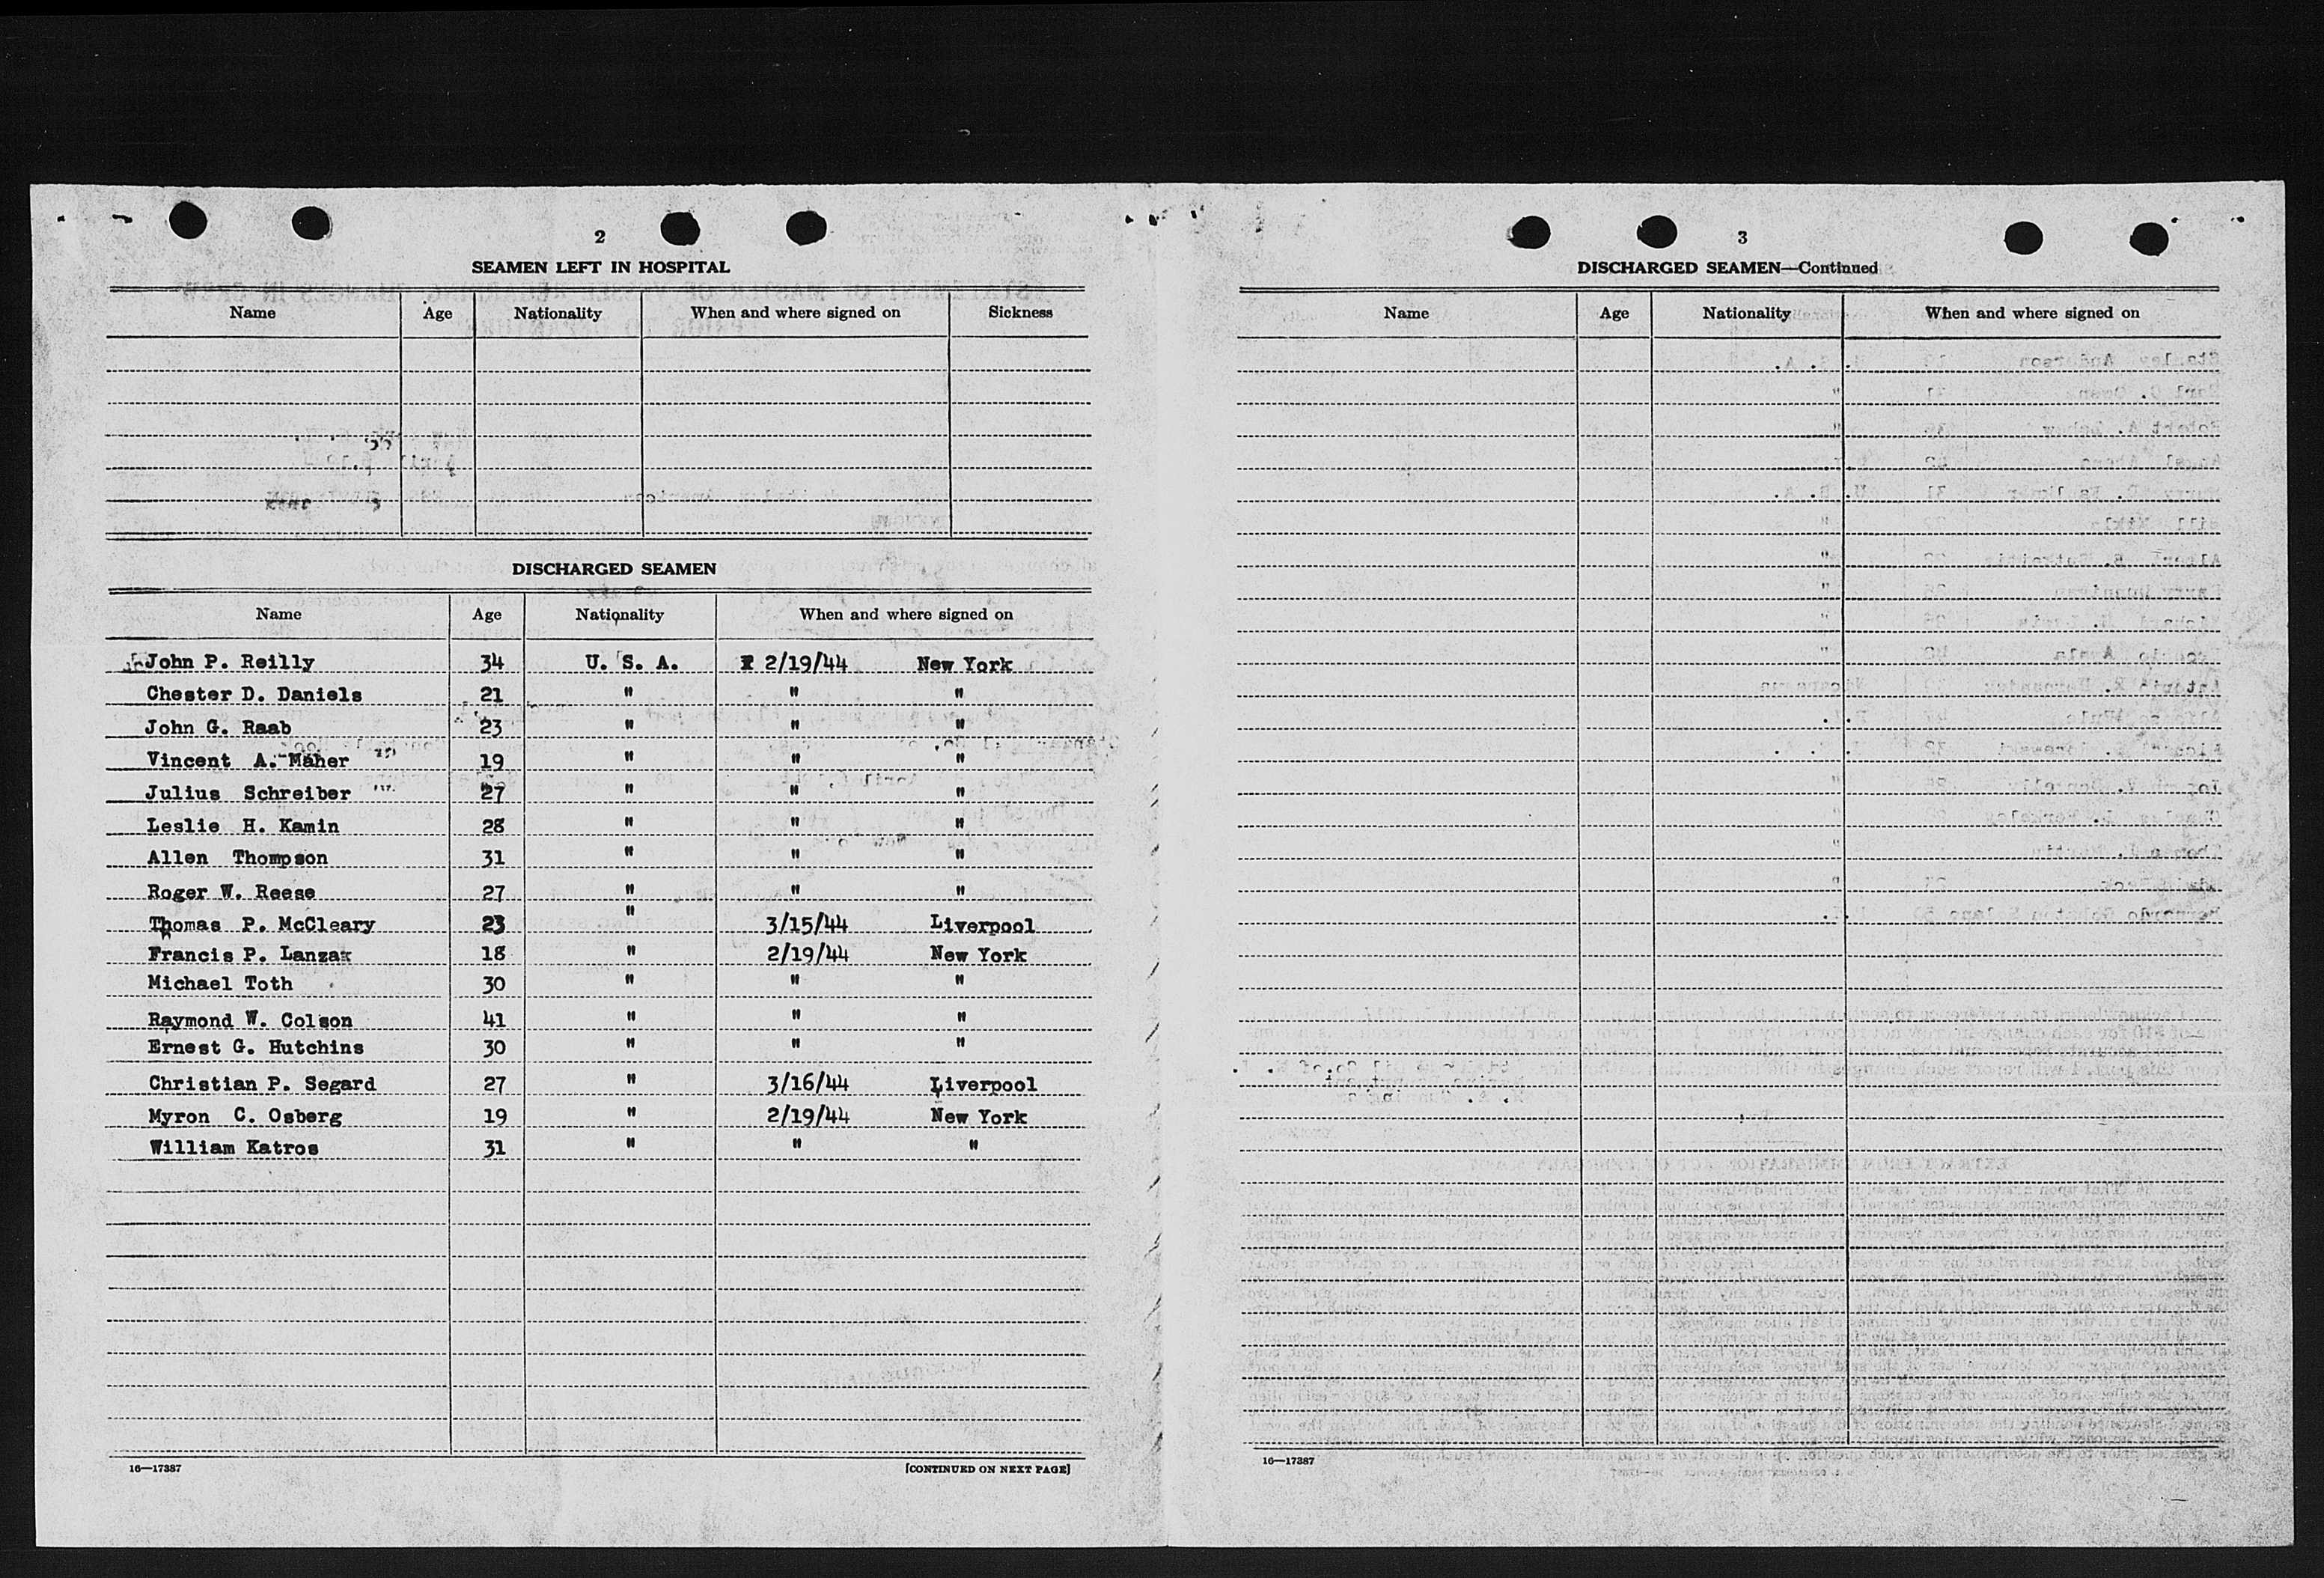 2
SEAMEN LEFT IN HOSPITAL
Name Age Nationality When and where signed on Sickness
DISCHARGED SEAMEN
Name Age Nationality When and where signed on
John P. Reilly 34 U. S. A. 2/19/44 New York
Chester D. Daniels 21 " " "
John G. Raab 23 " " "
Vincent A. Maher 19 " " "
Julius Schreiber 27 " " "
Leslie H. Kamin 28 " " "
Allen Thompson 31 " " "
Roger W. Reese 27 " " "
Thomas P. McCleary 23 " 3/15/44 Liverpool
Francis P. 18 " 2/19/44 New York
Michael Toth 30 " " "
Raymond W. Colson 41 " " "
Ernest G. Hutchins 30 " " "
Christian P. Segard 27 " 3/16/44 Liverpool
Myron C. Osberg 19 " 2/19/44 New York
William Katros 31 " " "
16—17387 [CONTINUED ON NEXT PAGE]
3
DISCHARGED SEAMEN—Continued
Name Age Nationality When and where signed on
16—17387